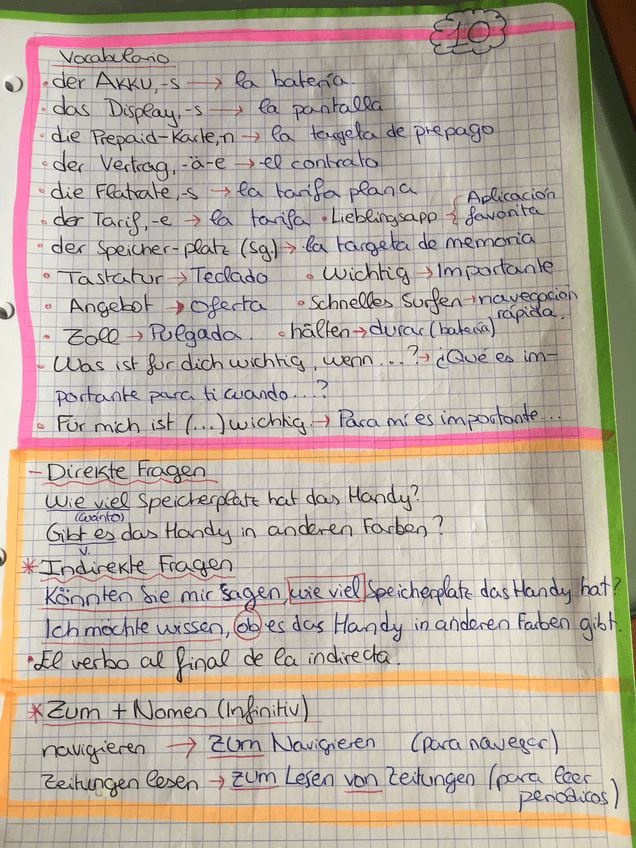 10
Vocabulario
· der Akku, -s → la batería.
· das Display, -s → la pantalla
· die Prepaid-Karte, n → la targeta de prepago
· der Vertrag, -ä-e → el contrato
· die Flatrate, -s → la tarifa plana
· der Tarif, -e → la tarifa · Lieblingsapp { Aplicación favorita
· der Speicher-platz (Sg) → la targeta de memoria
· Tastatur → Teclado · Wichtig → Importante
· Angebot → Oferta · Schnelles Surfen → navegación rápida.
· Zoll → Pulgada. · hälten → durar (batería)
· Was ist fur dich wichtig, wenn ...? → ¿Qué es im-
portante para ti cuando ...?
· Für mich ist (...) wichtig. → Para mí es importante...
- Direkte Fragen
Wie viel Speicherplatz hat das Handy?
(cuánto)
Gibt es das Handy in anderen Farben?
v.
* Indirekte Fragen
Könnten Sie mir sagen, wie viel Speicherplatz das Handy hat?
Ich möchte wissen, ob es das Handy in anderen Farben gibt.
· El verbo al final de la indirecta.
* Zum + Nomen (Infinitiv)
navigieren → zum Navigieren (para navegar)
Zeitungen lesen → zum Lesen von Zeitungen (para leer
periodicos)